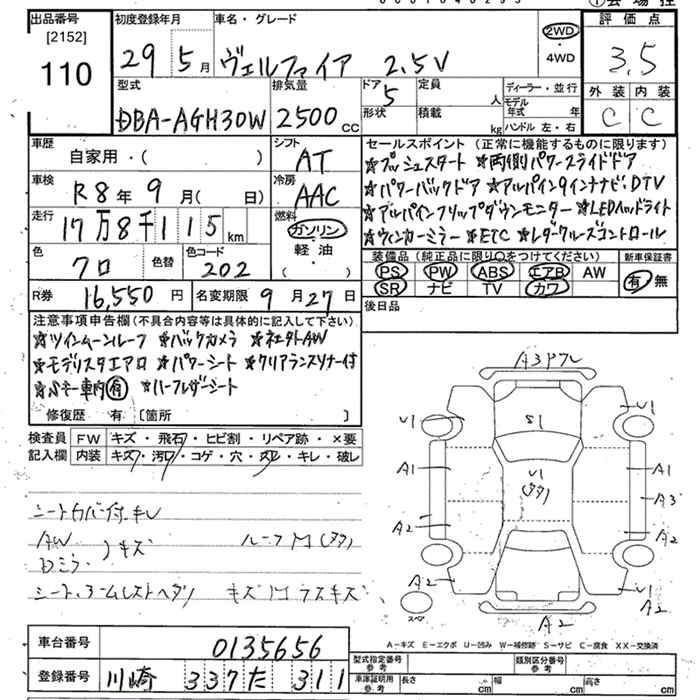 出品番号
[2152]
110
初度登録年月
29 5月
車名・グレード
ヴェルファイア 2.5V
2WD
・
4WD
評価点
3.5
外装 内装
C C
型式
DBA-AGH30W
排気量
2500cc
ドア
5
形状
定員
人
積載
kg
ディーラー・並行
モデル年式 年
ハンドル 左・右
車歴
自家用・( )
シフト
AT
車検
R8年9月( 日)
冷房
AAC
走行
17万8千115km
燃料
ガソリン
軽油
・
( )
色
クロ
色替
色コード
202
R券
16,550円
名変期限
9月27日
セールスポイント (正常に機能するものに限ります)
★プッシュスタート ★両側パワースライドドア
★パワーバックドア ★アルパイン9インチナビ:DTV
★アルパインフリップダウンモニター ★LEDヘッドライト
★ウィンカーミラー ★ETC ★レーダークルーズコントロール
装備品(純正品に限り○をつけてください) 新車保証書
PS PW ABS エアB AW
SR ナビ TV カワ
有・無
後日品
注意事項申告欄(不具合内容等は具体的に記入して下さい)
★ツインムーンルーフ ★バックカメラ ★社外AW
★モデリスタエアロ ★パワーシート ★クリアランスソナー付
★Sキー車内有 ★ハーフレザーシート
修復歴 有 [箇所 ]
検査員記入欄
FW キズ・飛石・ヒビ割・リペア跡・×要
内装 キズ・汚レ・コゲ・穴・スレ・キレ・破レ
シートカバー付
AW
Dミラー
キズ
ルーフM(タタ)
A3ワレ
U1 S1 U1
A1 U1 A1
(タタ)
A3
A2 A2
A2 U1
スペア
A2
A2
A-キズ E-エクボ U-凹み W-補修跡 S-サビ C-腐食 XX-交換済
車台番号
0135656
登録番号
川崎 337 た 311
型式指定番号
参考
類別区分番号
参考
車庫証明用
参考
長さ cm
幅 cm
高さ cm